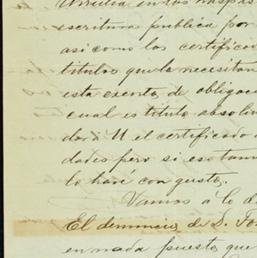 Urrutia en las traspas
escritura publica por
asi como los certificad
titulos que la necesitan
esta exenta, de obligac
cual es titulo absolu
dará U el certificado
dades pero si eso tam
lo haré con gusto.
Vamos á lo d
El denuncio de D. Jo
en nada puesto que